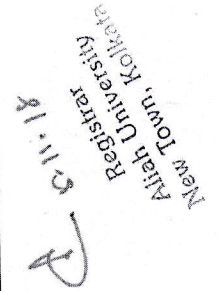 5.11.18
Registrar
Aliah University
New Town, Kolkata